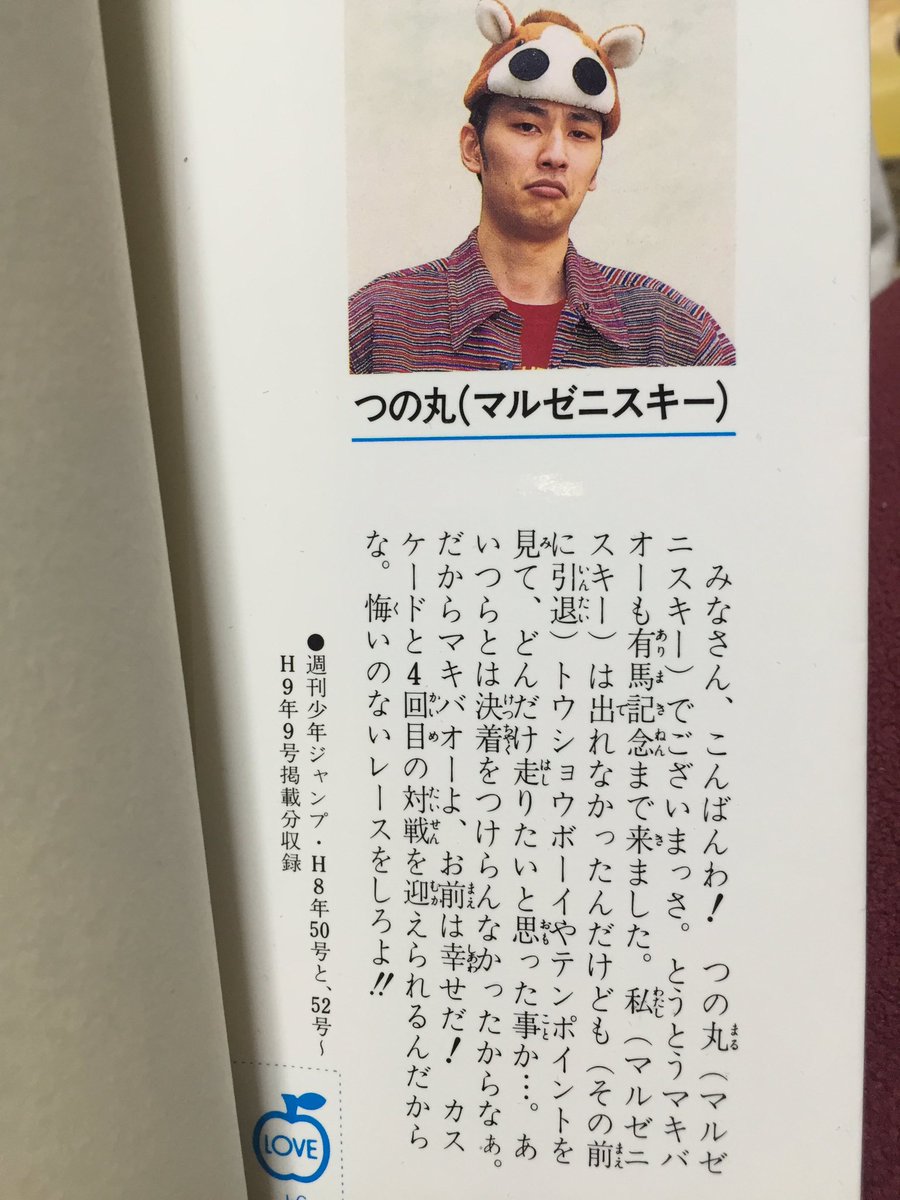 つの丸(マルゼニスキー)
みなさん、こんばんわ! つの丸(マルゼ
ニスキー)でございまっさ。とうとうマキバ
オーも有馬記念まで来ました。私(マルゼニ
スキー)は出れなかったんだけども(その前
に引退)トウショウボーイやテンポイントを
見て、どんだけ走りたいと思った事か…。あ
いつらとは決着をつけらんなかったからなぁ。
だからマキバオーよ、お前は幸せだ! カス
ケードと4回目の対戦を迎えられるんだから
な。悔いのないレースをしろよ!!
●週刊少年ジャンプ・H8年50号と、52号〜
H9年9号掲載分収録
LOVE